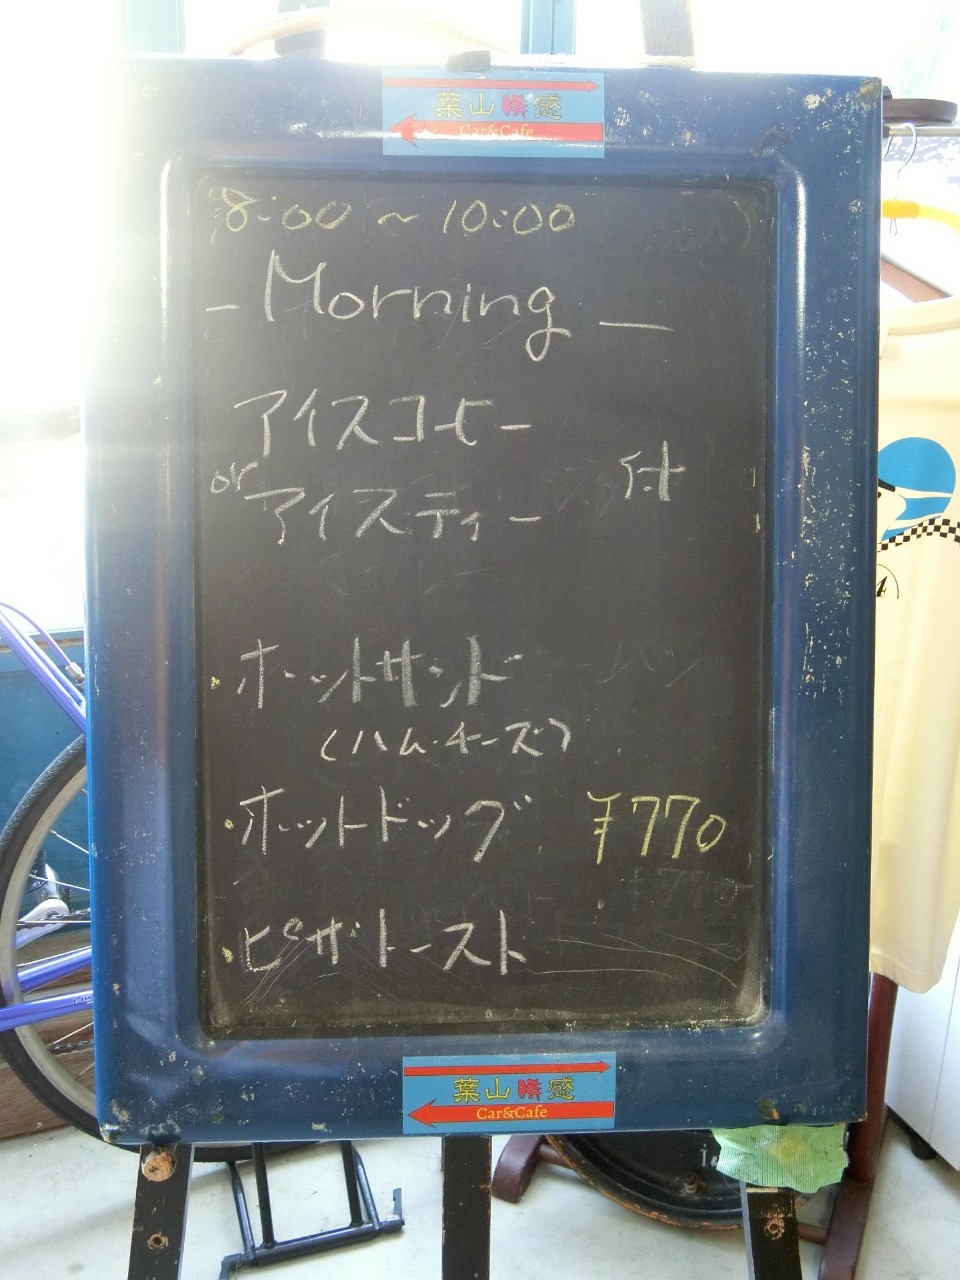 葉山勝感
Car&Cafe
8:00 ~ 10:00
- Morning -
アイスコーヒー
or
アイスティー
付
・ホットサンド
(ハム・チーズ)
・ホットドッグ ¥770
・ピザトースト
葉山勝感
Car&Cafe